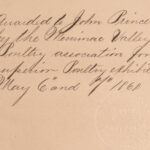 Awarded to John Prince
by the Merrimac Valley
Poultry association for
superior Poultry exhibited
May 6 and 7th 1860